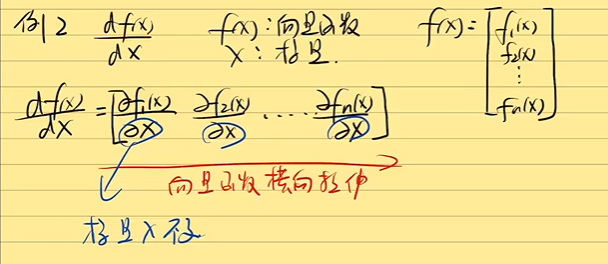 例2 df(x)/dx f(x):向量函数 f(x)=[f₁(x) f₂(x) ⋮ fₙ(x)]
x:标量.
df(x)/dx=[∂f₁(x)/∂x ∂f₂(x)/∂x ····· ∂fₙ(x)/∂x]
向量函数横向拉伸
标量x不变